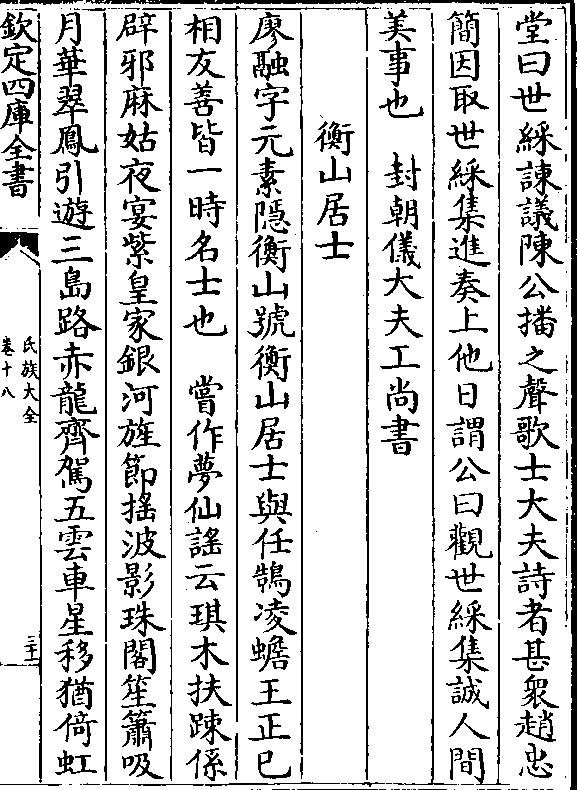 堂曰世綵諫議陳公播之聲歌士大夫詩者甚衆趙忠
簡因取世綵集進奏上他日謂公曰觀世綵集誠人間
美事也　封朝儀大夫工尚書
衡山居士
廖融字元素隱衡山號衡山居士與任鵠凌蟾王正已
相友善皆一時名士也　嘗作夢仙謠云琪木扶踈係
辟邪麻姑夜宴紫皇家銀河旌節揺波影珠閣笙簫吸
月華翠鳳引遊三島路赤龍齊駕五雲車星移猶倚虹
欽定四庫全書
氏族大全
卷十八
三十